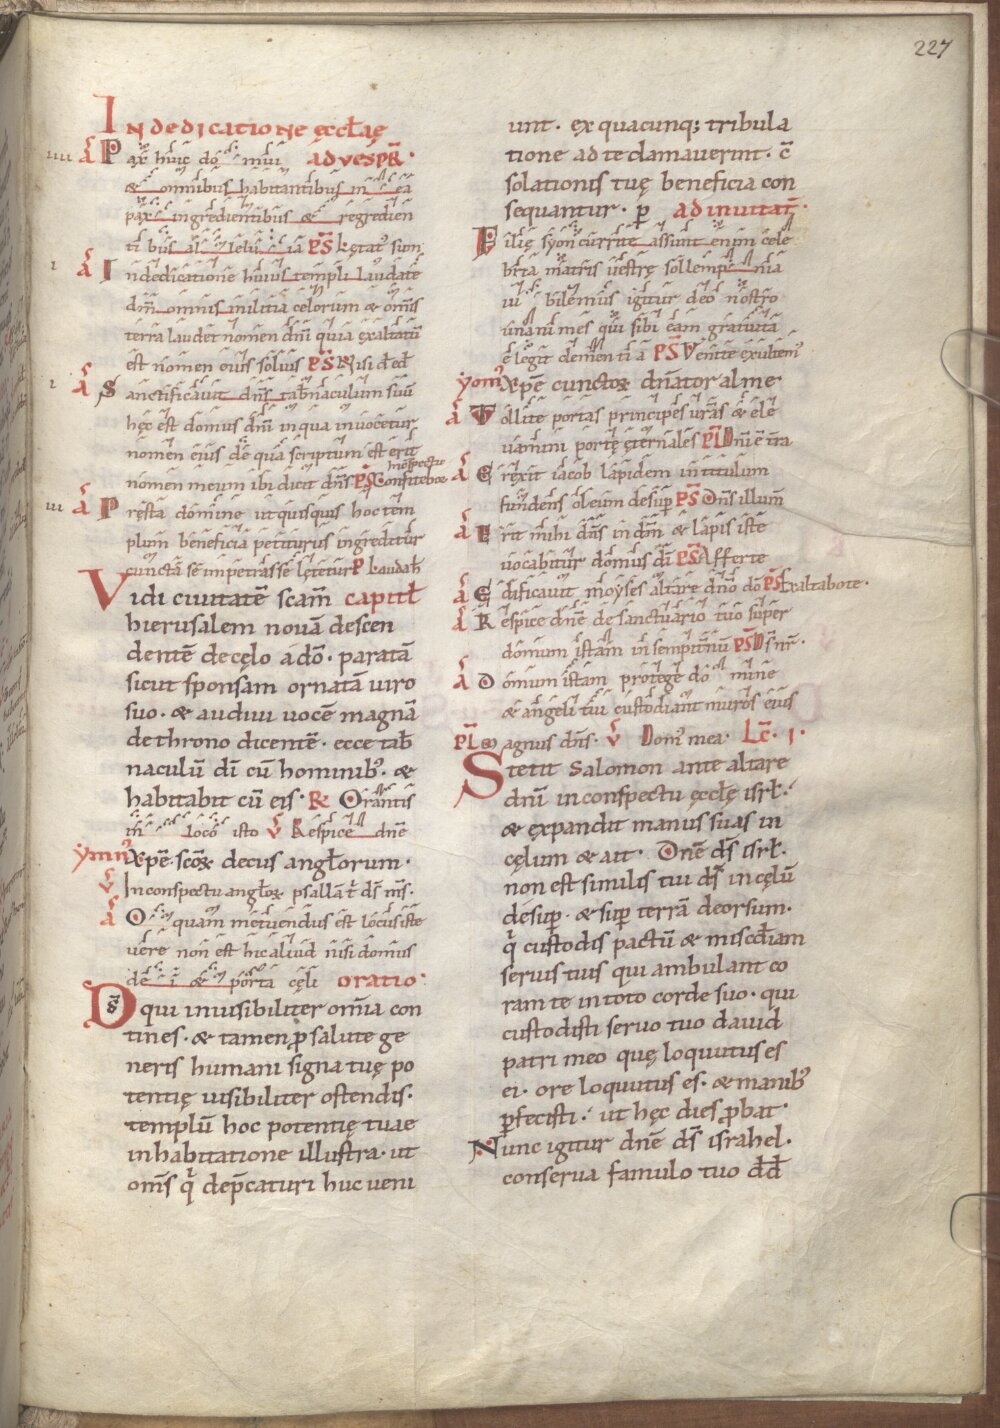 227
In dedicatione ęccl̄ae
iiii A̅ Pax huic do mui ad vesp̄R̄·
& omnibus habitantibus in ea
pax ingredientibus & regredien
ti bus al leluia PS̄ Lętat' sum
i A̅ In dedicatione huius templi laudate
dn̄m omnis militia celorum & om̄s
terra laudet nomen dn̄i quia exaltatū
est nomen eius solius PS̄ Nisi d̄ ed̄
i A̅ Sanctificavit dn̄s tab̄naculum suū
hęc est domus dn̄i in qua invocetur
nomen eius de qua scriptum est erit
nomen meum ibi dicit dn̄s PS̄ Confitebor
In c̄spectu
iii A̅ Pręsta domine ut quisquis hoc tem
plum beneficia petiturus ingreditur
cuncta se impetrasse lętetur P Laudaƀ
Vidi civitatē scam̄ capitl̄
hierusalem novā descen
dentē de cęlo a dō· paratā
sicut sponsam ornatā viro
suo· & audivi vocē magnā
de throno dicentē· ecce tab̄
naculū dī cū hominib'· &
habitabit cū eis· R̄ Orantis
in loco isto V̄ Respice dn̄e
ymn' Xp̄e scōꝝ decus angl̄orum·
V̄ In conspectu angl̄oꝝ psallā t̄ ds̄ ms̄·
A̅ O quam metuendus est locus iste
vere non est hic aliud nisi domus
de i & porta cęli oratio·
Ds̄ qui invisibiliter om̄ia con
tines· & tamen ꝓ salute ge
neris humani signa tuę po
tentię visibiliter ostendis·
templū hoc potentię tuae
inhabitatione illustra· ut
om̄s q̄ dep̄caturi huc veni
unt· ex quacunq; tribula
tione ad te clamaverint· c̄
solationis tuę beneficia con
sequantur· p̄ ad invitat̄·
Filię syon currite assunt enim cele
bria matris vestrę sollemp nia
iu bilemus igitur deo nostro
unanimes qui sibi eam gratuita
elegit clementi a PS̄ Venite exultem'
ymn' Xp̄e cunctoꝝ dn̄ator alme
A̅ Tollite portas principes vr̄as & ele
vamini portę ęternales PS̄ Dn̄i ē t̄ra
A̅ Erexit iacob lapidem in titulum
fundens oleum desup̄ PS̄ Dn̄s illum̄
A̅ Erit mihi dn̄s in dm̄ & lapis iste
vocabitur domus dī PS̄ Afferte
A̅ Edificavit moyses altare dn̄o dō PS̄ Exaltabo te·
A̅ Respice dn̄e de sanctuario tuo super
domum istam in sempit̄nū PS̄ Ds̄ nr̄·
A̅ Domum istam protege do mine
& angeli tui custodiant muros eius
PS̄ Magnus dn̄s· V̄ Dom' mea· Lc̄· I·
Stetit Salomon ante altare
dn̄i in conspectu ęccl̄ę isrl̄·
& expandit manus suas in
cęlum & ait· Dn̄e ds̄ isrl̄·
non est similis tui ds̄ in cęlū
desup̄· & sup̄ terrā deorsum·
q̄ custodis pactū & misc̄diam
servis tuis qui ambulant co
ram te in toto corde suo· qui
custodisti servo tuo david
patri meo quę loquutus es
ei· ore loquutus es· & manib'
ꝑfecisti· ut hęc dies ꝓbat·
Nunc igitur dn̄e ds̄ israhel·
conserva famulo tuo dd̄